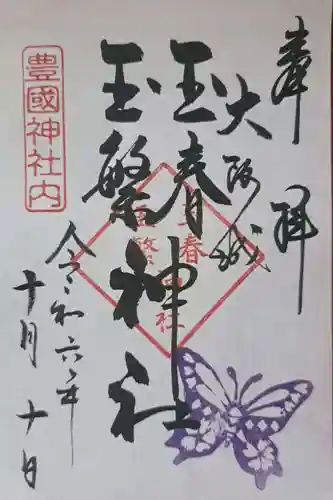 奉拝
大阪城
玉春
玉繁
神社
玉春
玉繁
神社
豊國神社内
令和六年
十月十日